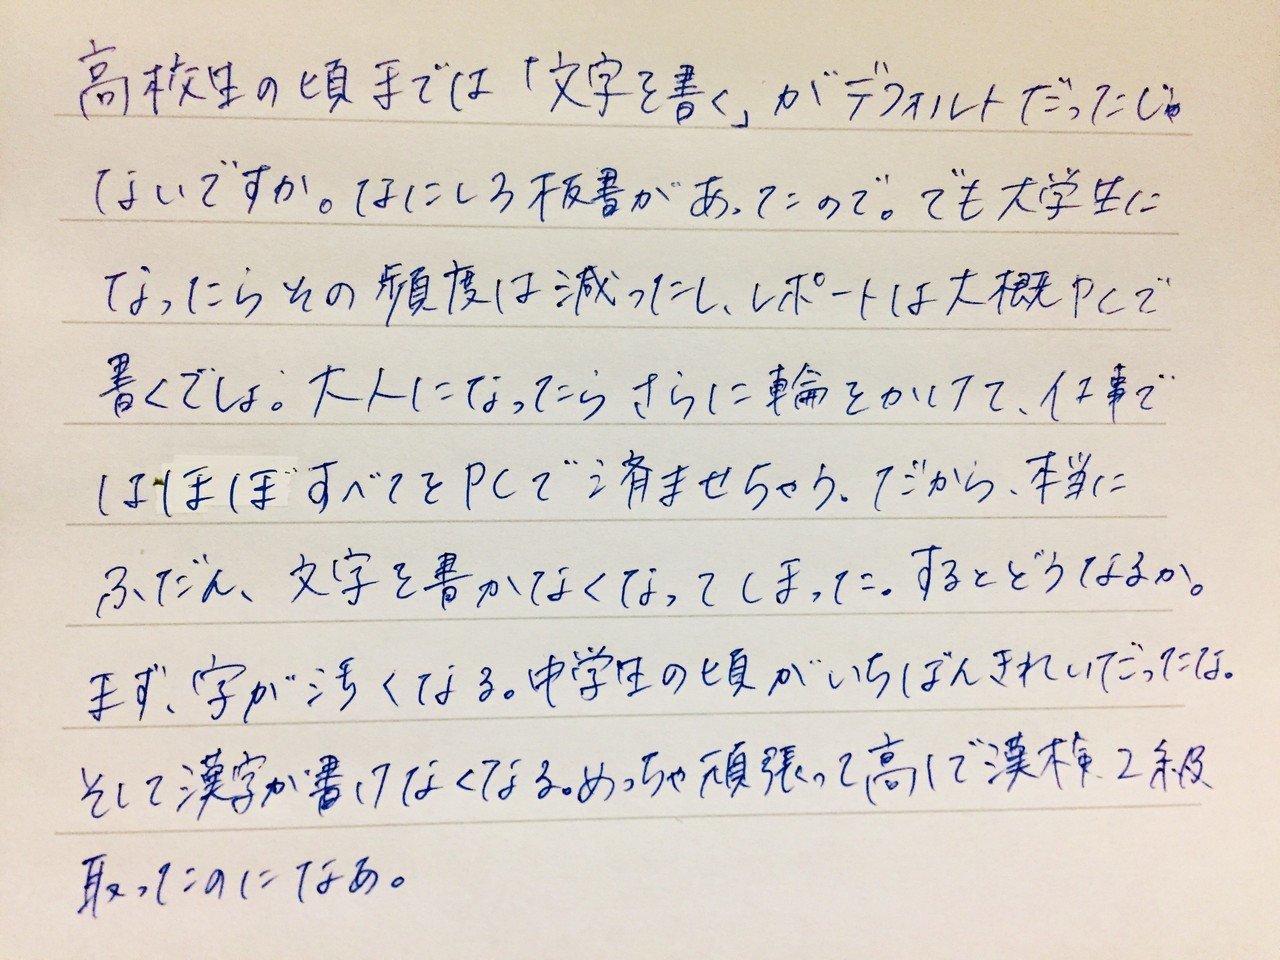 高校生の頃までは「文字を書く」がデフォルトだったじゃ
ないですか。なにしろ板書があったので。でも大学生に
なったらその頻度は減ったし、レポートは大概PCで
書くでしょ。大人になったらさらに輪をかけて、仕事で
はほぼすべてをPCで済ませちゃう。だから、本当に
ふだん、文字を書かなくなってしまった。するとどうなるか。
まず、字が汚くなる。中学生の頃がいちばんきれいだったな。
そして漢字が書けなくなる。めっちゃ頑張って高1で漢検2級
取ったのになあ。